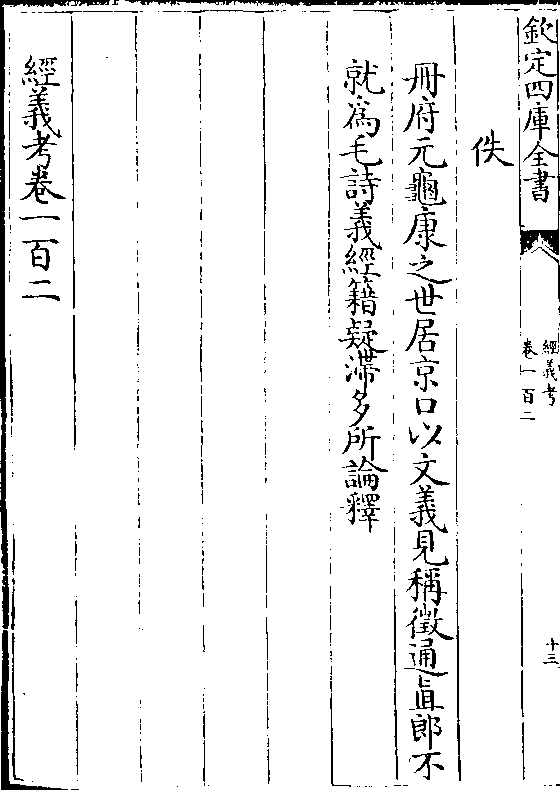 欽定四庫全書
經義考
卷一百二
十三
佚
冊府元龜康之世居京口以文義見稱徵通直郎不
就爲毛詩義經籍疑滯多所論釋
經義考卷一百二